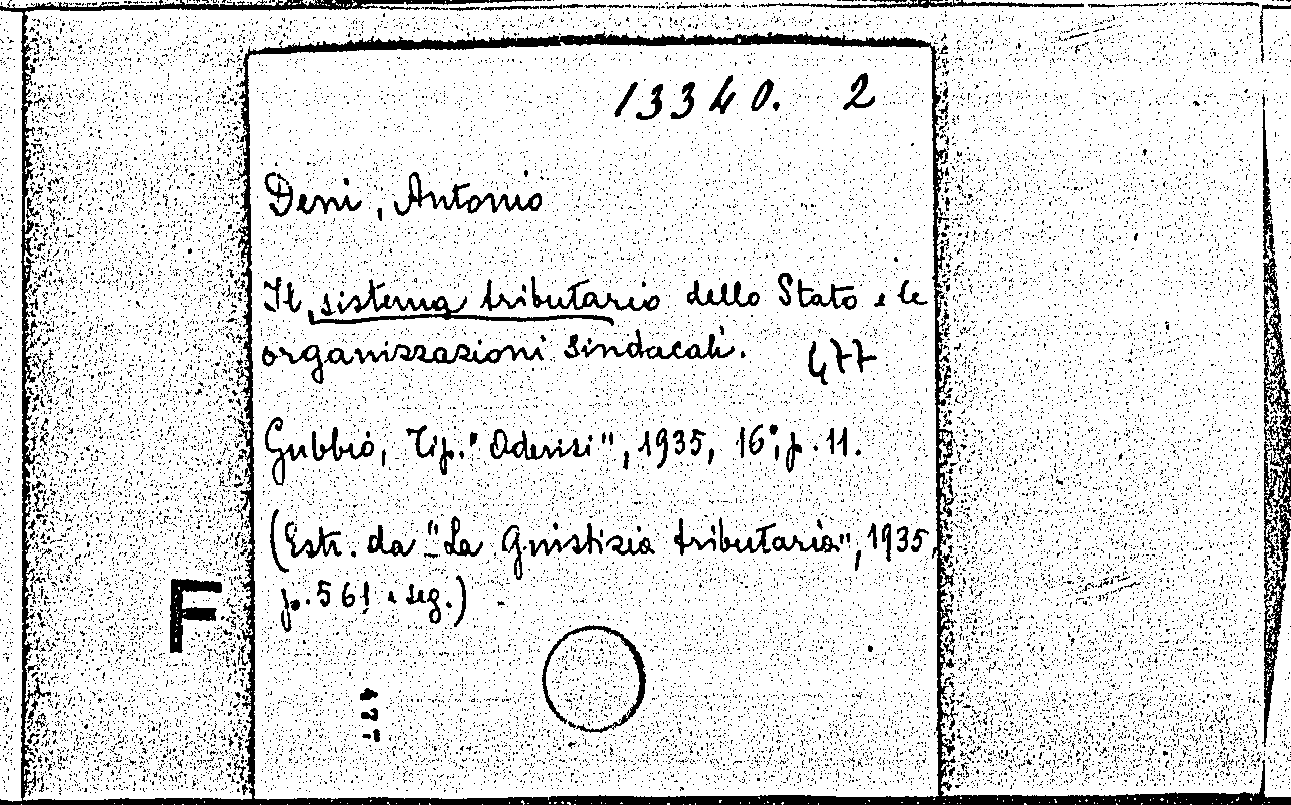 13340. 2
Deni, Antonio
Il sistema tributario dello Stato e le
organizzazioni sindacali. 477
Gubbio, Tip. "Oderisi", 1935, 16°, p. 11.
(Estr. da "La Giustizia tributaria", 1935,
p. 561 e seg.)
F